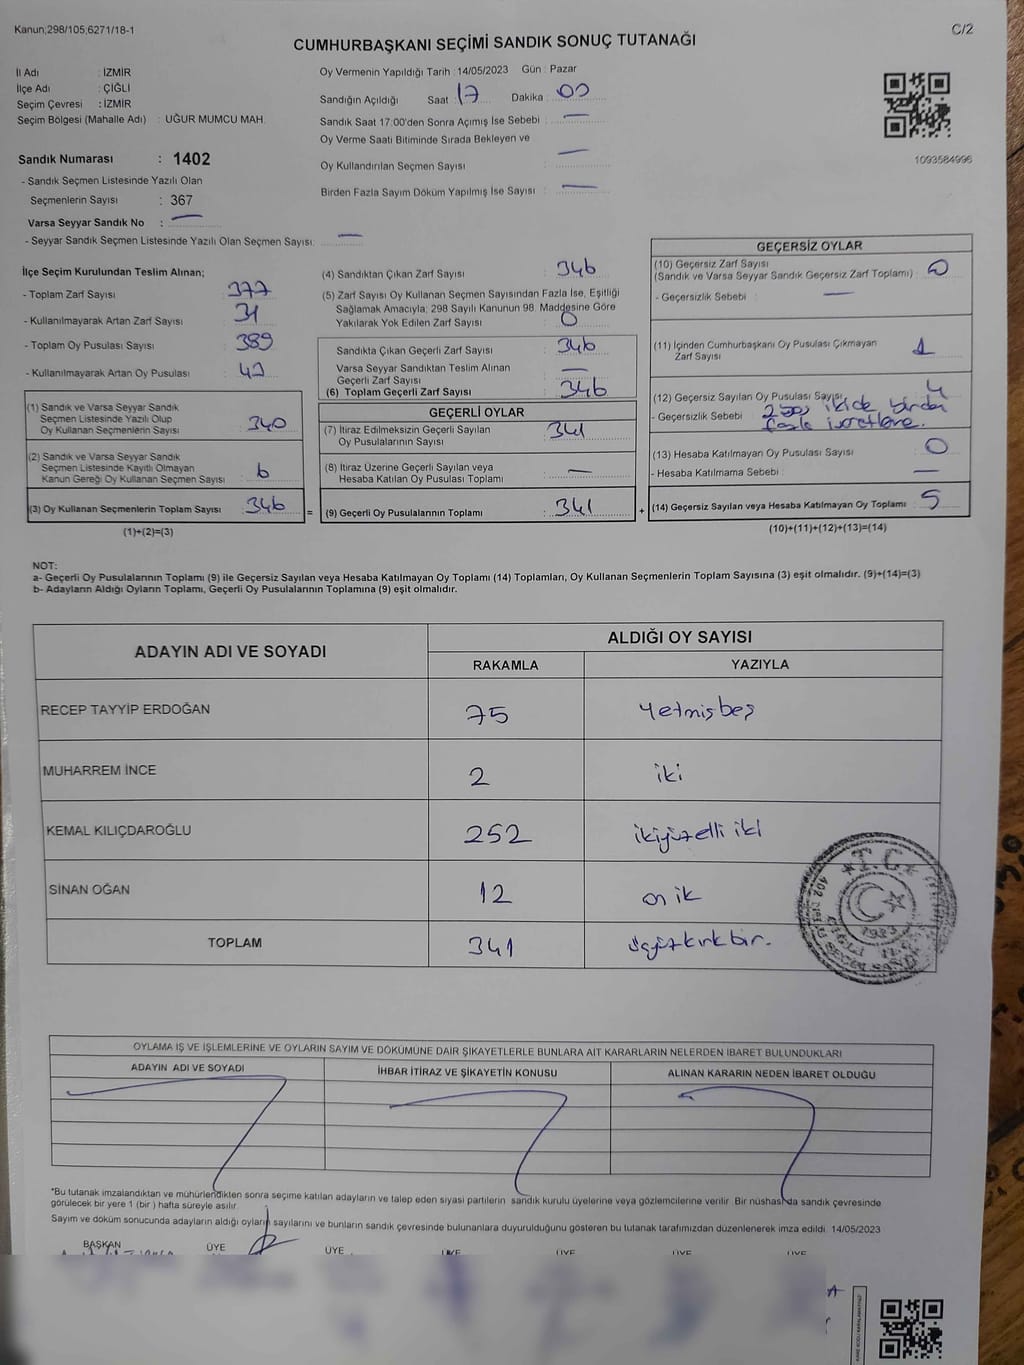 Kanun;298/105;6271/18-1
C/2
CUMHURBAŞKANI SEÇİMİ SANDIK SONUÇ TUTANAĞI
İl Adı : İZMİR
İlçe Adı : ÇİĞLİ
Seçim Çevresi : İZMİR
Seçim Bölgesi (Mahalle Adı) : UĞUR MUMCU MAH.
Oy Vermenin Yapıldığı Tarih : 14/05/2023 Gün : Pazar
Sandığın Açıldığı Saat 17 Dakika 00
Sandık Saat 17:00'den Sonra Açılmış İse Sebebi : —
Oy Verme Saati Bitiminde Sırada Bekleyen ve
Oy Kullandırılan Seçmen Sayısı : —
Birden Fazla Sayım Döküm Yapılmış İse Sayısı : —
1093584996
Sandık Numarası : 1402
- Sandık Seçmen Listesinde Yazılı Olan
Seçmenlerin Sayısı : 367
Varsa Seyyar Sandık No : —
- Seyyar Sandık Seçmen Listesinde Yazılı Olan Seçmen Sayısı: —
İlçe Seçim Kurulundan Teslim Alınan;
- Toplam Zarf Sayısı : 377
- Kullanılmayarak Artan Zarf Sayısı : 31
- Toplam Oy Pusulası Sayısı : 389
- Kullanılmayarak Artan Oy Pusulası :
(1) Sandık ve Varsa Seyyar Sandık
Seçmen Listesinde Yazılı Olup
Oy Kullanan Seçmenlerin Sayısı : 340
(2) Sandık ve Varsa Seyyar Sandık
Seçmen Listesinde Kayıtlı Olmayan
Kanun Gereği Oy Kullanan Seçmen Sayısı : 6
(3) Oy Kullanan Seçmenlerin Toplam Sayısı : 346
(1)+(2)=(3)
(4) Sandıktan Çıkan Zarf Sayısı : 346
(5) Zarf Sayısı Oy Kullanan Seçmen Sayısından Fazla İse, Eşitliği
Sağlamak Amacıyla; 298 Sayılı Kanunun 98. Maddesine Göre
Yakılarak Yok Edilen Zarf Sayısı : 0
Sandıkta Çıkan Geçerli Zarf Sayısı : 346
Varsa Seyyar Sandıktan Teslim Alınan
Geçerli Zarf Sayısı : —
(6) Toplam Geçerli Zarf Sayısı : 346
GEÇERLİ OYLAR
(7) İtiraz Edilmeksizin Geçerli Sayılan
Oy Pusulalarının Sayısı : 341
(8) İtiraz Üzerine Geçerli Sayılan veya
Hesaba Katılan Oy Pusulası Toplamı : —
= (9) Geçerli Oy Pusulalarının Toplamı : 341
GEÇERSİZ OYLAR
(10) Geçersiz Zarf Sayısı
(Sandık ve Varsa Seyyar Sandık Geçersiz Zarf Toplamı) : 0
- Geçersizlik Sebebi : —
(11) İçinden Cumhurbaşkanı Oy Pusulası Çıkmayan
Zarf Sayısı : 1
(12) Geçersiz Sayılan Oy Pusulası Sayısı : 4
- Geçersizlik Sebebi : 2 boş ikide birden
fazla işaretleme.
(13) Hesaba Katılmayan Oy Pusulası Sayısı : 0
- Hesaba Katılmama Sebebi : —
+ (14) Geçersiz Sayılan veya Hesaba Katılmayan Oy Toplamı : 5
(10)+(11)+(12)+(13)=(14)
NOT:
a- Geçerli Oy Pusulalarının Toplamı (9) ile Geçersiz Sayılan veya Hesaba Katılmayan Oy Toplamı (14) Toplamları, Oy Kullanan Seçmenlerin Toplam Sayısına (3) eşit olmalıdır. (9)+(14)=(3)
b- Adayların Aldığı Oyların Toplamı, Geçerli Oy Pusulalarının Toplamına (9) eşit olmalıdır.
ADAYIN ADI VE SOYADI
ALDIĞI OY SAYISI
RAKAMLA YAZIYLA
RECEP TAYYİP ERDOĞAN 75 Yetmişbeş
MUHARREM İNCE 2 iki
KEMAL KILIÇDAROĞLU 252 ikiyüzelli iki
SİNAN OĞAN 12 on ik
TOPLAM 341 üçyüzkırkbir.
T.C.
1923
OYLAMA İŞ VE İŞLEMLERİNE VE OYLARIN SAYIM VE DÖKÜMÜNE DAİR ŞİKAYETLERLE BUNLARA AİT KARARLARIN NELERDEN İBARET BULUNDUKLARI
ADAYIN ADI VE SOYADI İHBAR İTİRAZ VE ŞİKAYETİN KONUSU ALINAN KARARIN NEDEN İBARET OLDUĞU
*Bu tutanak imzalandıktan ve mühürlendikten sonra seçime katılan adayların ve talep eden siyasi partilerin sandık kurulu üyelerine veya gözlemcilerine verilir. Bir nüshası da sandık çevresinde
görülecek bir yere 1 (bir) hafta süreyle asılır.
Sayım ve döküm sonucunda adayların aldığı oyların sayılarını ve bunların sandık çevresinde bulunanlara duyurulduğunu gösteren bu tutanak tarafımızdan düzenlenerek imza edildi. 14/05/2023
BAŞKAN ÜYE ÜYE ÜYE ÜYE ÜYE ÜYE